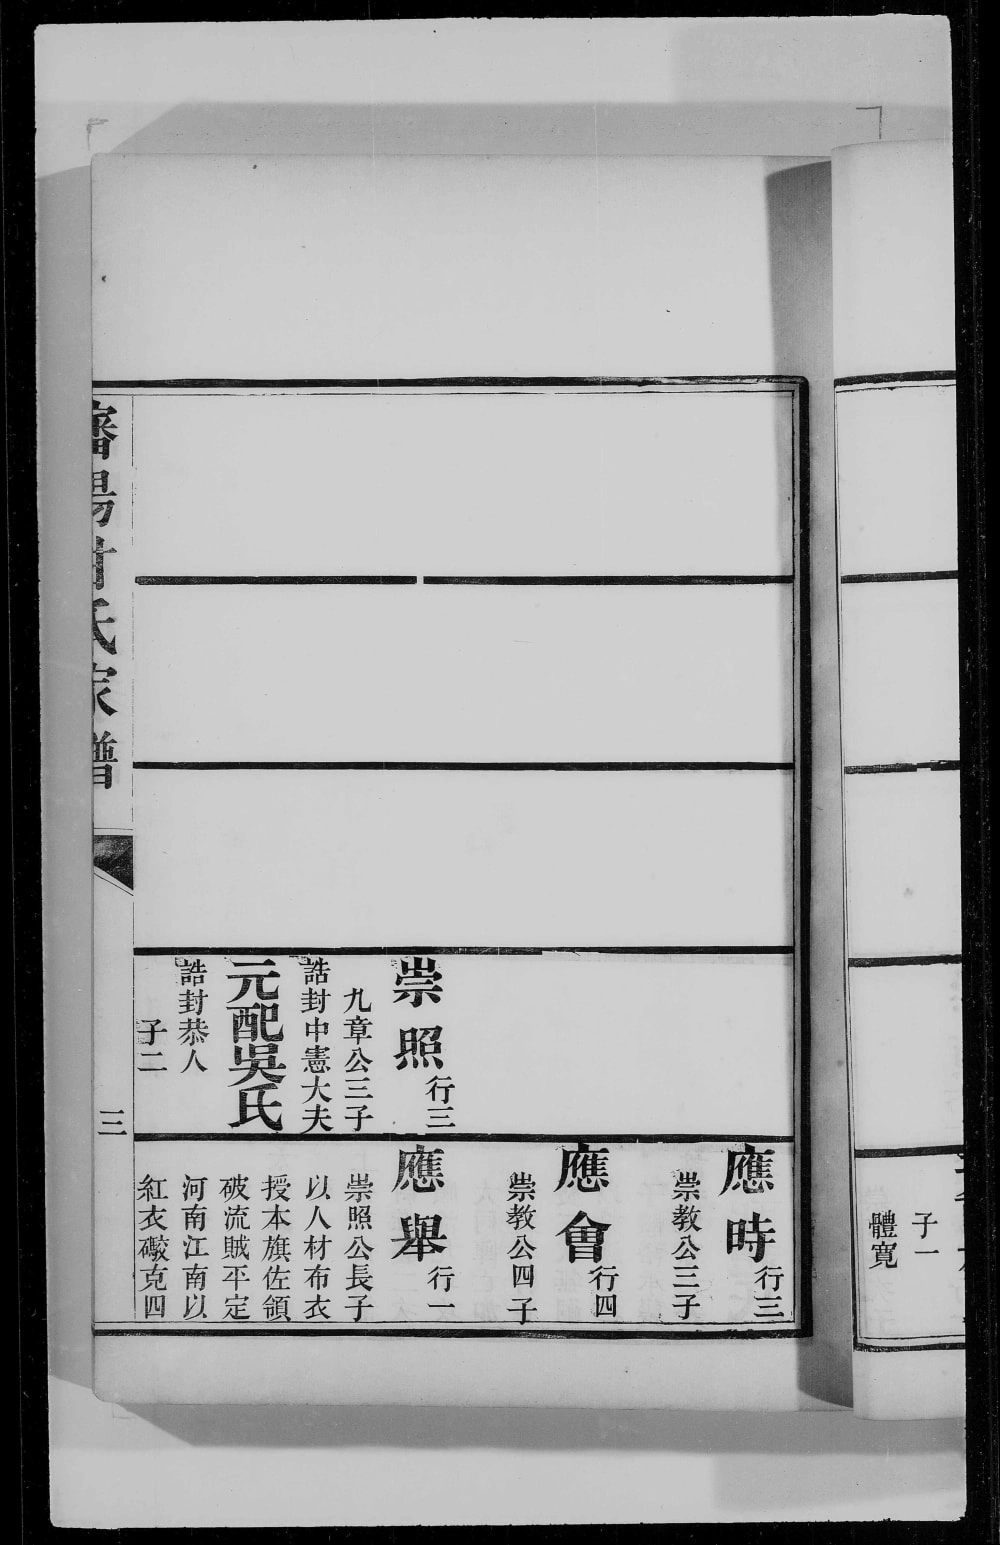 子一
體寬
崇照 行三
九章公三子
誥封中憲大夫
元配吳氏
誥封恭人
子二
應時 行三
崇教公三子
應會 行四
崇教公四子
應舉 行一
崇照公長子
以人材布衣
授本旗佐領
破流賊平定
河南江南以
紅衣礮克四
瀋陽甘氏家譜
三